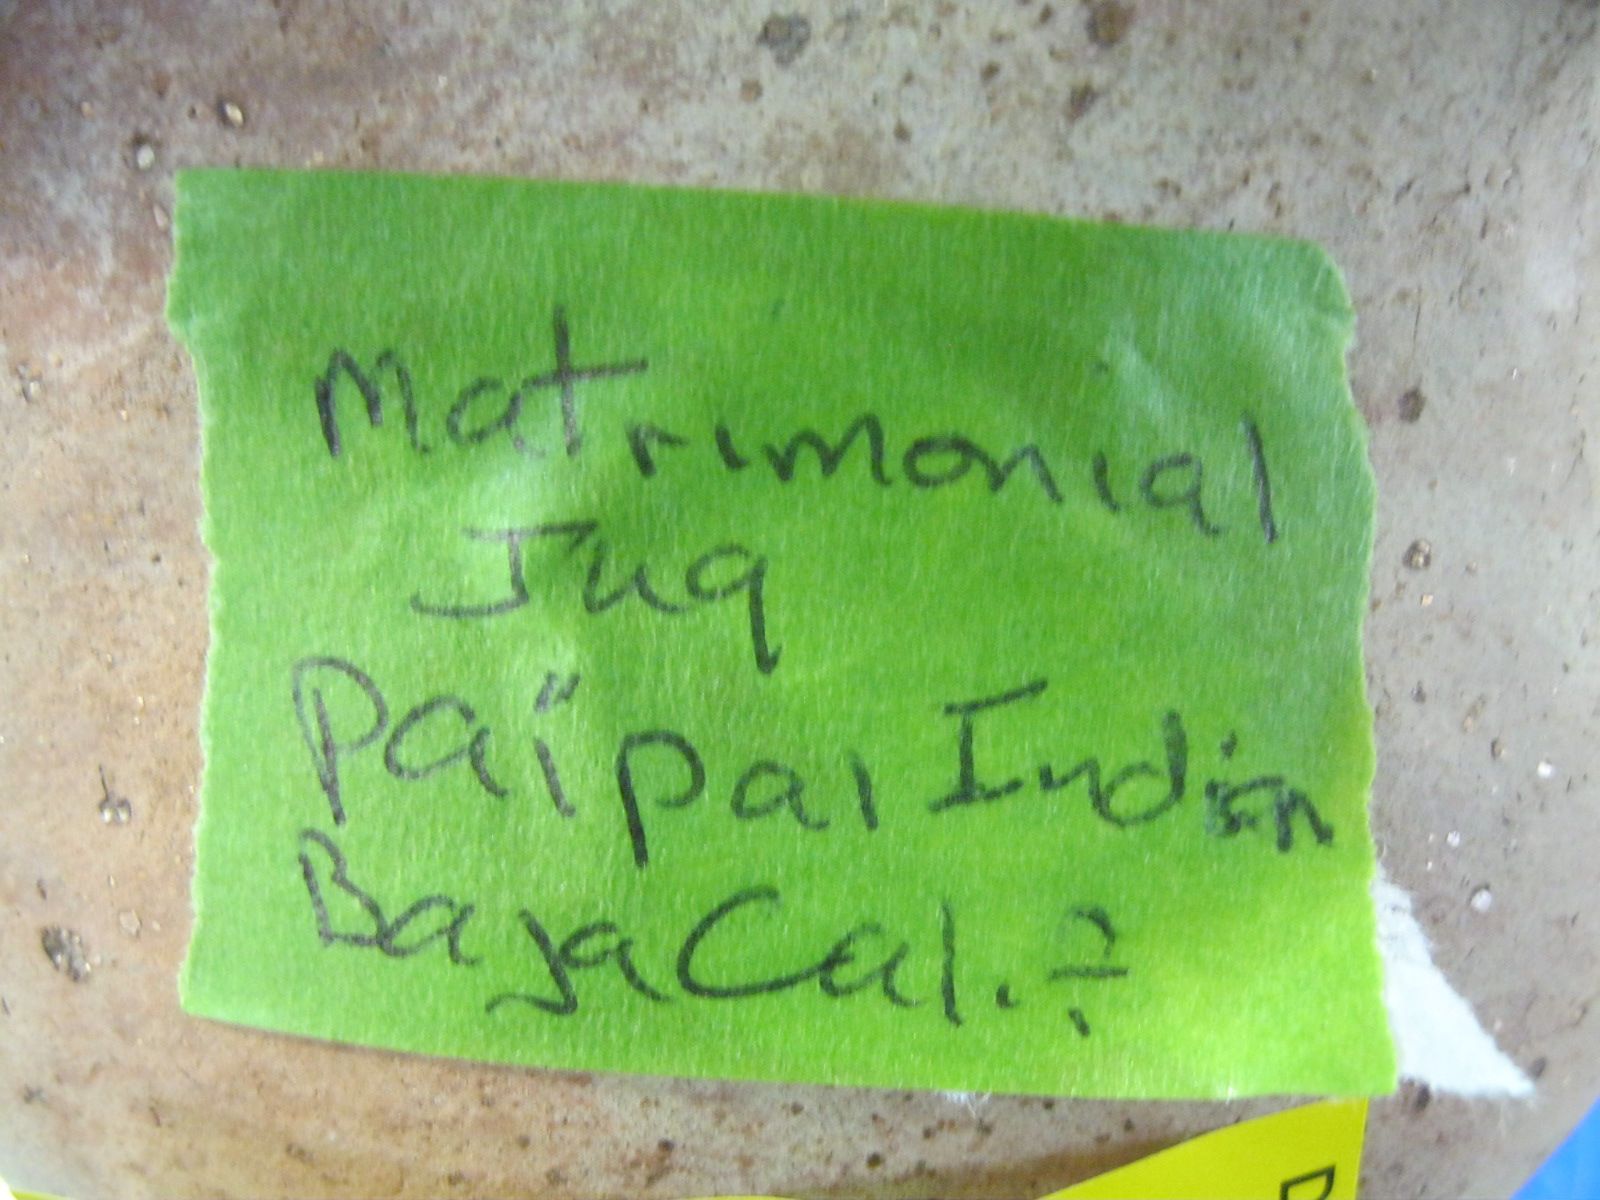 Matrimonial
Jug
Paï pai Indian
Baja Cal. ?
D